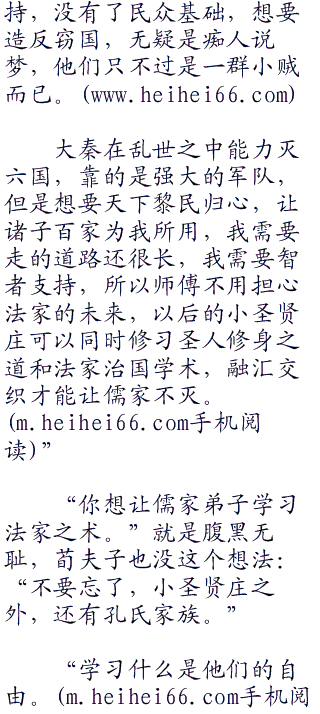 持，没有了民众基础，想要
造反窃国，无疑是痴人说
梦，他们只不过是一群小贼
而已。(www.heihei66.com)
大秦在乱世之中能力灭
六国，靠的是强大的军队，
但是想要天下黎民归心，让
诸子百家为我所用，我需要
走的道路还很长，我需要智
者支持，所以师傅不用担心
法家的未来，以后的小圣贤
庄可以同时修习圣人修身之
道和法家治国学术，融汇交
织才能让儒家不灭。
(m.heihei66.com手机阅
读)”
“你想让儒家弟子学习
法家之术。”就是腹黑无
耻，荀夫子也没这个想法：
“不要忘了，小圣贤庄之
外，还有孔氏家族。”
“学习什么是他们的自
由。(m.heihei66.com手机阅